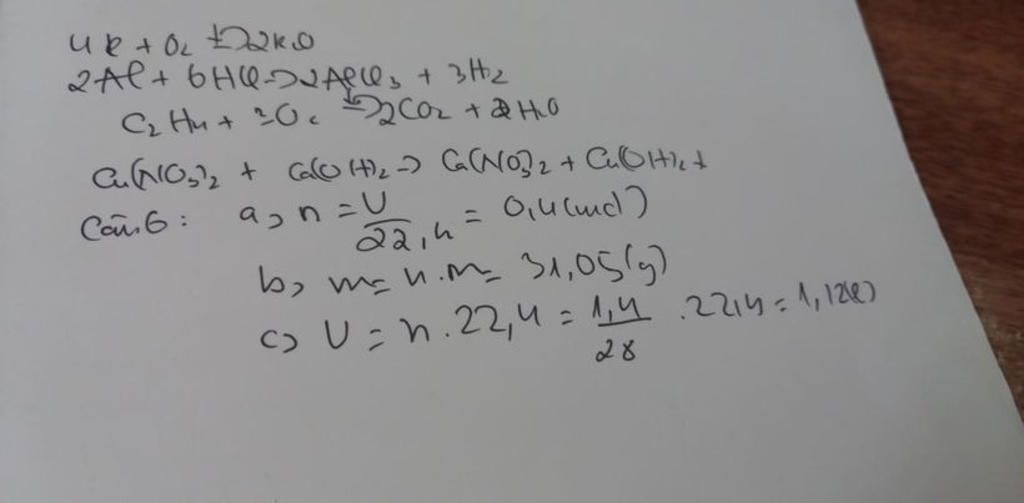 4K + O₂ →(t°) 2K₂O
2Al + 6HCl → 2AlCl₃ + 3H₂
C₂H₄ + 3O₂ →(t°) 2CO₂ + 2H₂O
Cu(NO₃)₂ + Ca(OH)₂ → Ca(NO₃)₂ + Cu(OH)₂↓
Câu 6: a, n = V/22,4 = 0,4 (mol)
b, m = n.M = 31,05 (g)
c, V = n . 22,4 = 1,4/28 . 22,4 = 1,12(l)